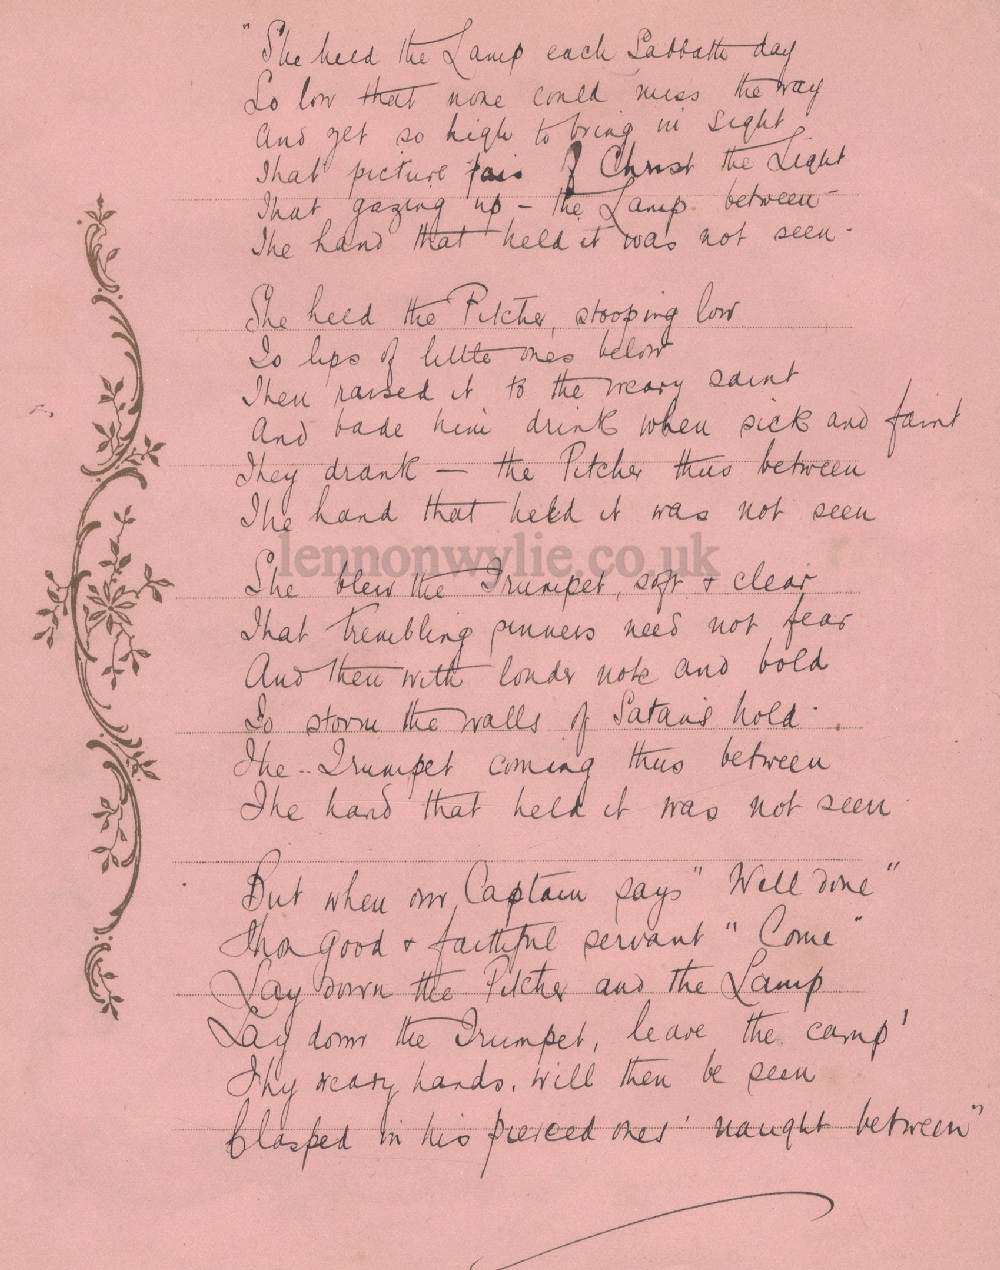 "She held the Lamp each Sabbath day
So low that none could miss the way
And yet so high to bring in sight
That picture fair of Christ the Light
That gazing up – the Lamp between
The hand that held it was not seen.
She held the Pitcher, stooping low
To lips of little ones below
Then raised it to the weary saint
And bade him drink when sick and faint
They drank — the Pitcher thus between
The hand that held it was not seen
lennonwylie.co.uk
She blew the Trumpet, soft & clear
That trembling sinners need not fear
And then with louder note and bold
To storm the walls of Satan's hold.
The Trumpet coming thus between
The hand that held it was not seen
But when our Captain says "Well done"
Thou good & faithful servant "Come"
Lay down the Pitcher and the Lamp
Lay down the Trumpet, leave the camp'
Thy weary hands, will then be seen
Clasped in his pierced ones' naught between"